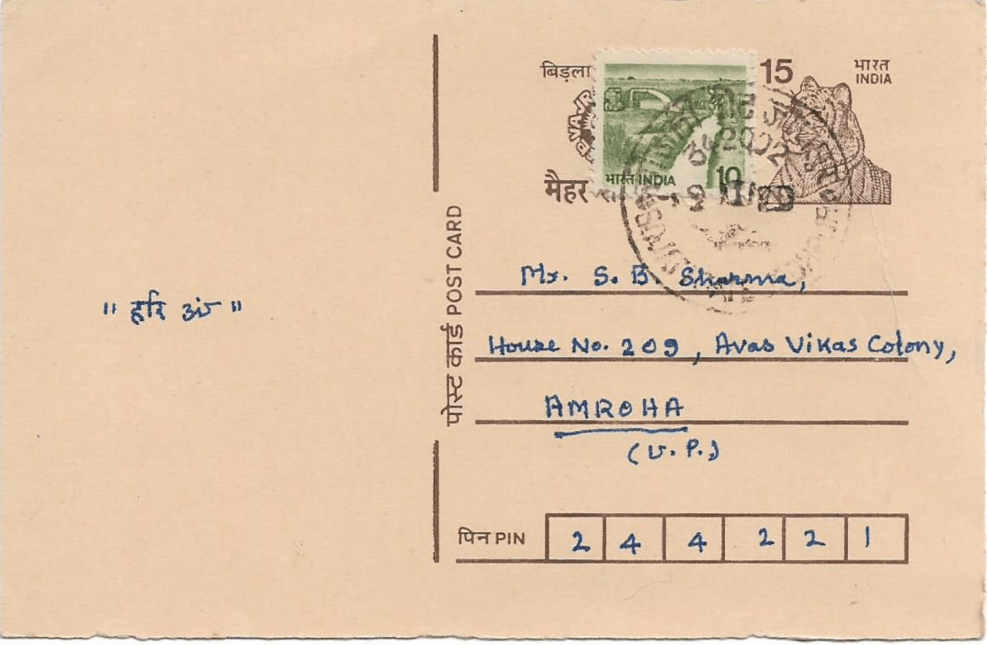 बिड़ला
15
भारत
INDIA
भारत INDIA 10
2002
मैहर
पोस्ट कार्ड POST CARD
Mr. S. B. Sharma,
" हरि ॐ "
House No. 209, Avas Vikas Colony,
AMROHA
(U.P.)
पिन PIN 2 4 4 2 2 1